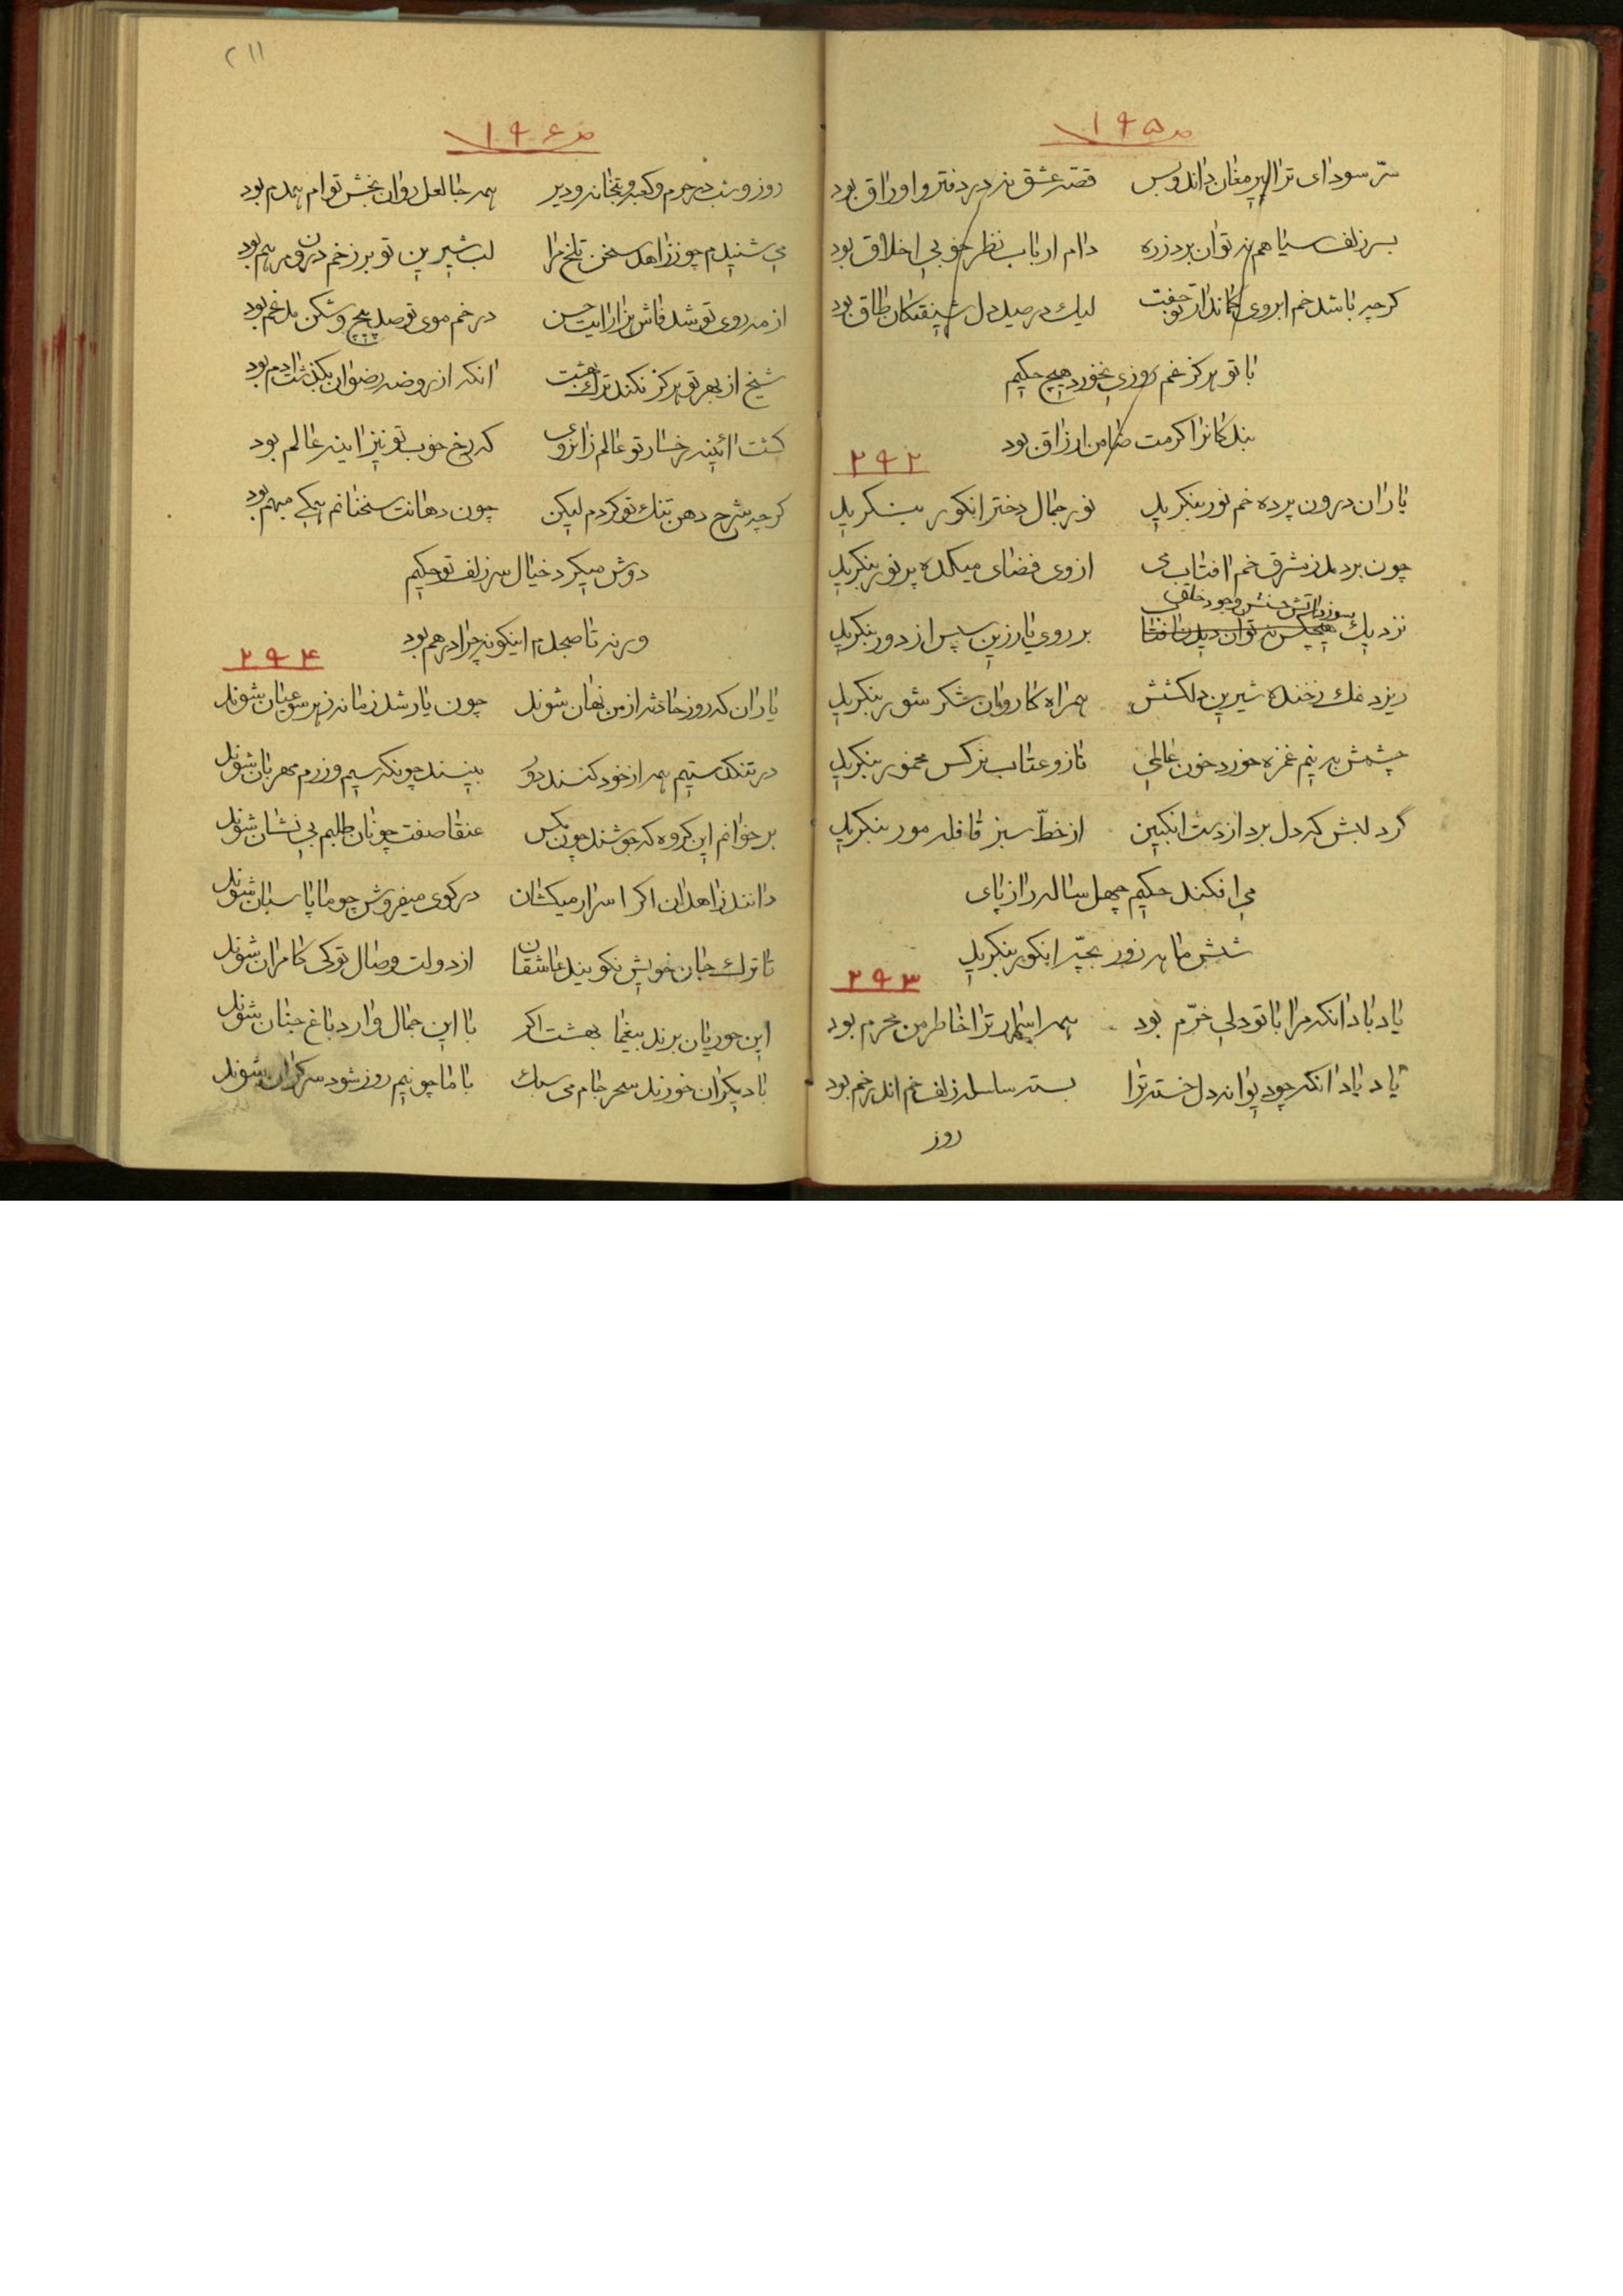 ص ۱۹۵
سرّ سودای ترا پیر مغان داند و بس قصّه عشق نه در دفتر و اوراق بود
بسر زلف سیاهم نتوان برد زره دام ارباب نظر خوبی اخلاق بود
کرچه باشد خم ابروی کماندار تو جفت لیك در صید دل شیفتکان طاق بود
با تو هرکز غم روزی نخورد هیچ حکیم
بندکانرا کرمت ضامن ارزاق بود
۲۹۲
یاران درون پرده خم نور بنکرید نور جمال دختر انکور بنکرید
چون بردمد ز مشرق خم افتاب می از وی فضای میکده پر نور بنکرید
سوزد اتش حسنش وجود خلق
نزدیك هیچکس نتوان دید بر روی یار زین سپس از دور بنکرید
ریزد نمك ز خنده شیرین دلکشش همراه کاروان شکر شور بنکرید
چشمش به نیم غمزه خورد خون عالمی ناز و عتاب نرکس مخمور بنکرید
کرد لبش که دل برد از دست انکبین از خطّ سبز قافله مور بنکرید
می افکند حکیم چهل ساله را ز پای
شش ماهه زور بچّه انکور بنکرید
۲۹۳
یاد باد انکه مرا با تو دلی خرّم بود همه اسرار ترا خاطر من محرم بود
یاد باد انکه چو دیوانه دل خسته ترا بسته سلسله زلف خم اندر خم بود
روز
۲۱۱
ص ۱۹۶
روز و شب در حرم و کعبه و بتخانه و دیر همه جا لعل روان بخش توام همدم بود
می شنیدم چو ز زاهد سخن تلخ ترا لب شیرین تو بر زخم درون مرهم بود
از مه روی تو شد فاش هزار ایت حسن در خم موی تو صد پیچ و شکن مدغم بود
شیخ از بهر تو هرکز نکند ترك بهشت انکه از روضه رضوان بکذشت ادم بود
کشت ائینه رخسار تو عالم زانروی که رخ خوب تو نیز اینه عالم بود
کرچه شرح دهن تنك تو کردم لیکن چون دهانت سخنانم همکی مبهم بود
دوش میکرد خیال سر زلف تو حکیم
ورنه تا صبحدم اینکونه چرا درهم بود
۲۹۴
یاران که روز حادثه از من نهان شوند چون یار شد زمانه ز هر سو عیان شوند
در تنکدستیم همه از خود کنند دور بینند چونکه سیم و زرم مهربان شوند
بر خوانم این کروه که جوشند چون مکس عنقا صفت چو نان طلبم بی نشان شوند
دانند زاهدان اکر اسرار میکشان در کوی میفروش چو ما پاسبان شوند
تا ترك جان خویش نکویند عاشقان از دولت وصال تو کی کامران شوند
این حوریان برند بیغما بهشت اکر با این جمال وارد باغ جنان شوند
با دیکران خورند سحر جام می سبك با ما چو نیم روز شود سرکران شوند